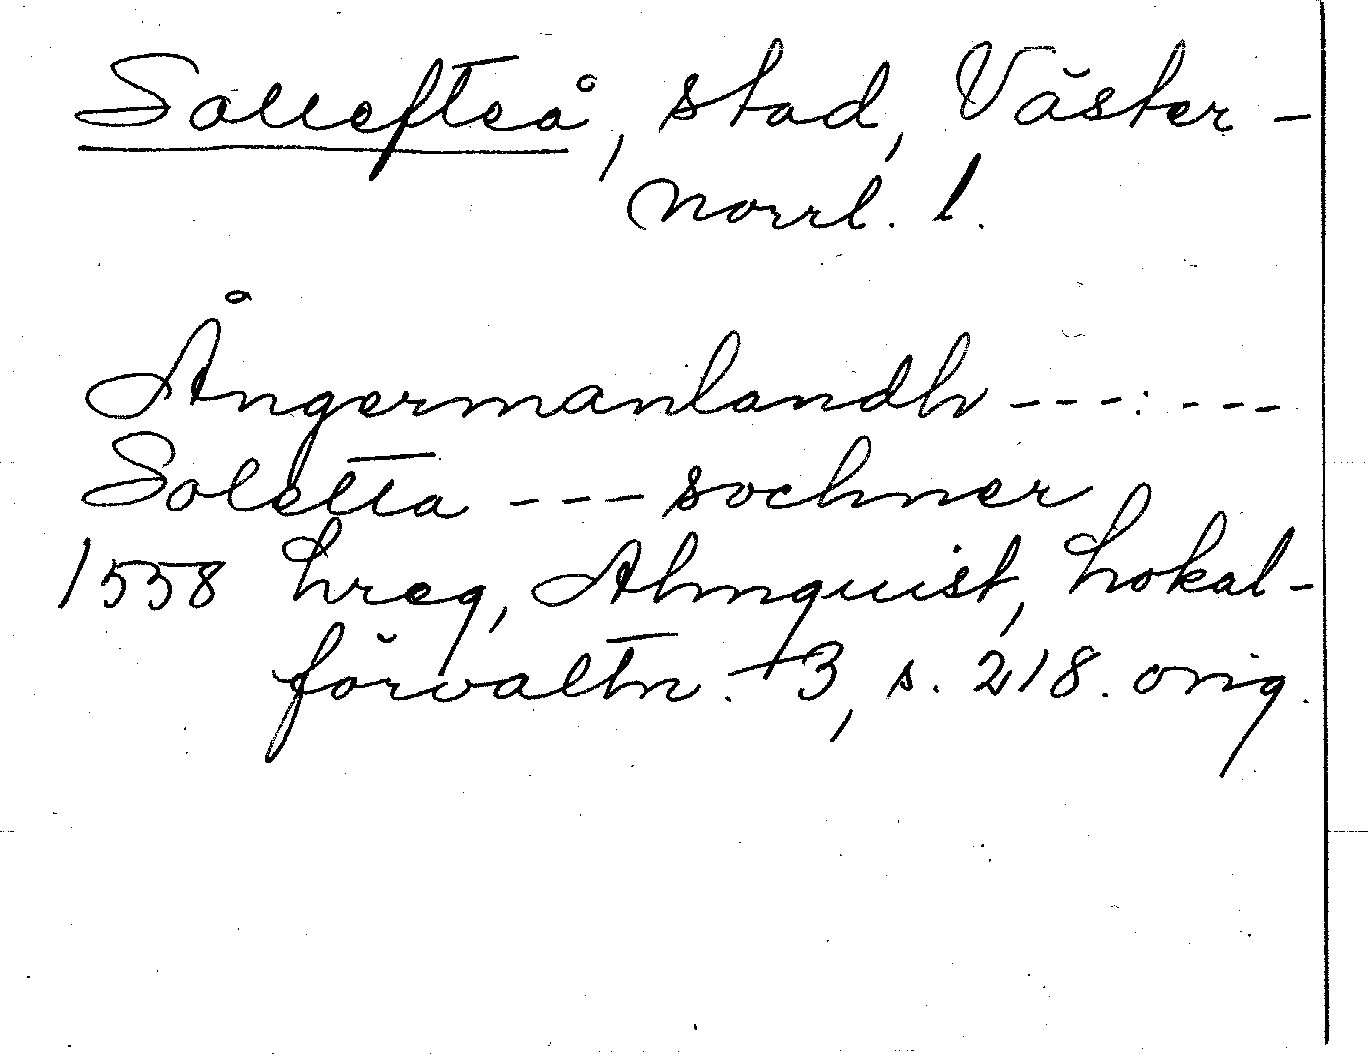 Sollefteå, stad, Väster-
norrl. l.
Ångermanlandh ---:---
Soletta --- sochner
1558 hreg, Almquist, Lokal-
förvaltn. +3, s. 218. orig.